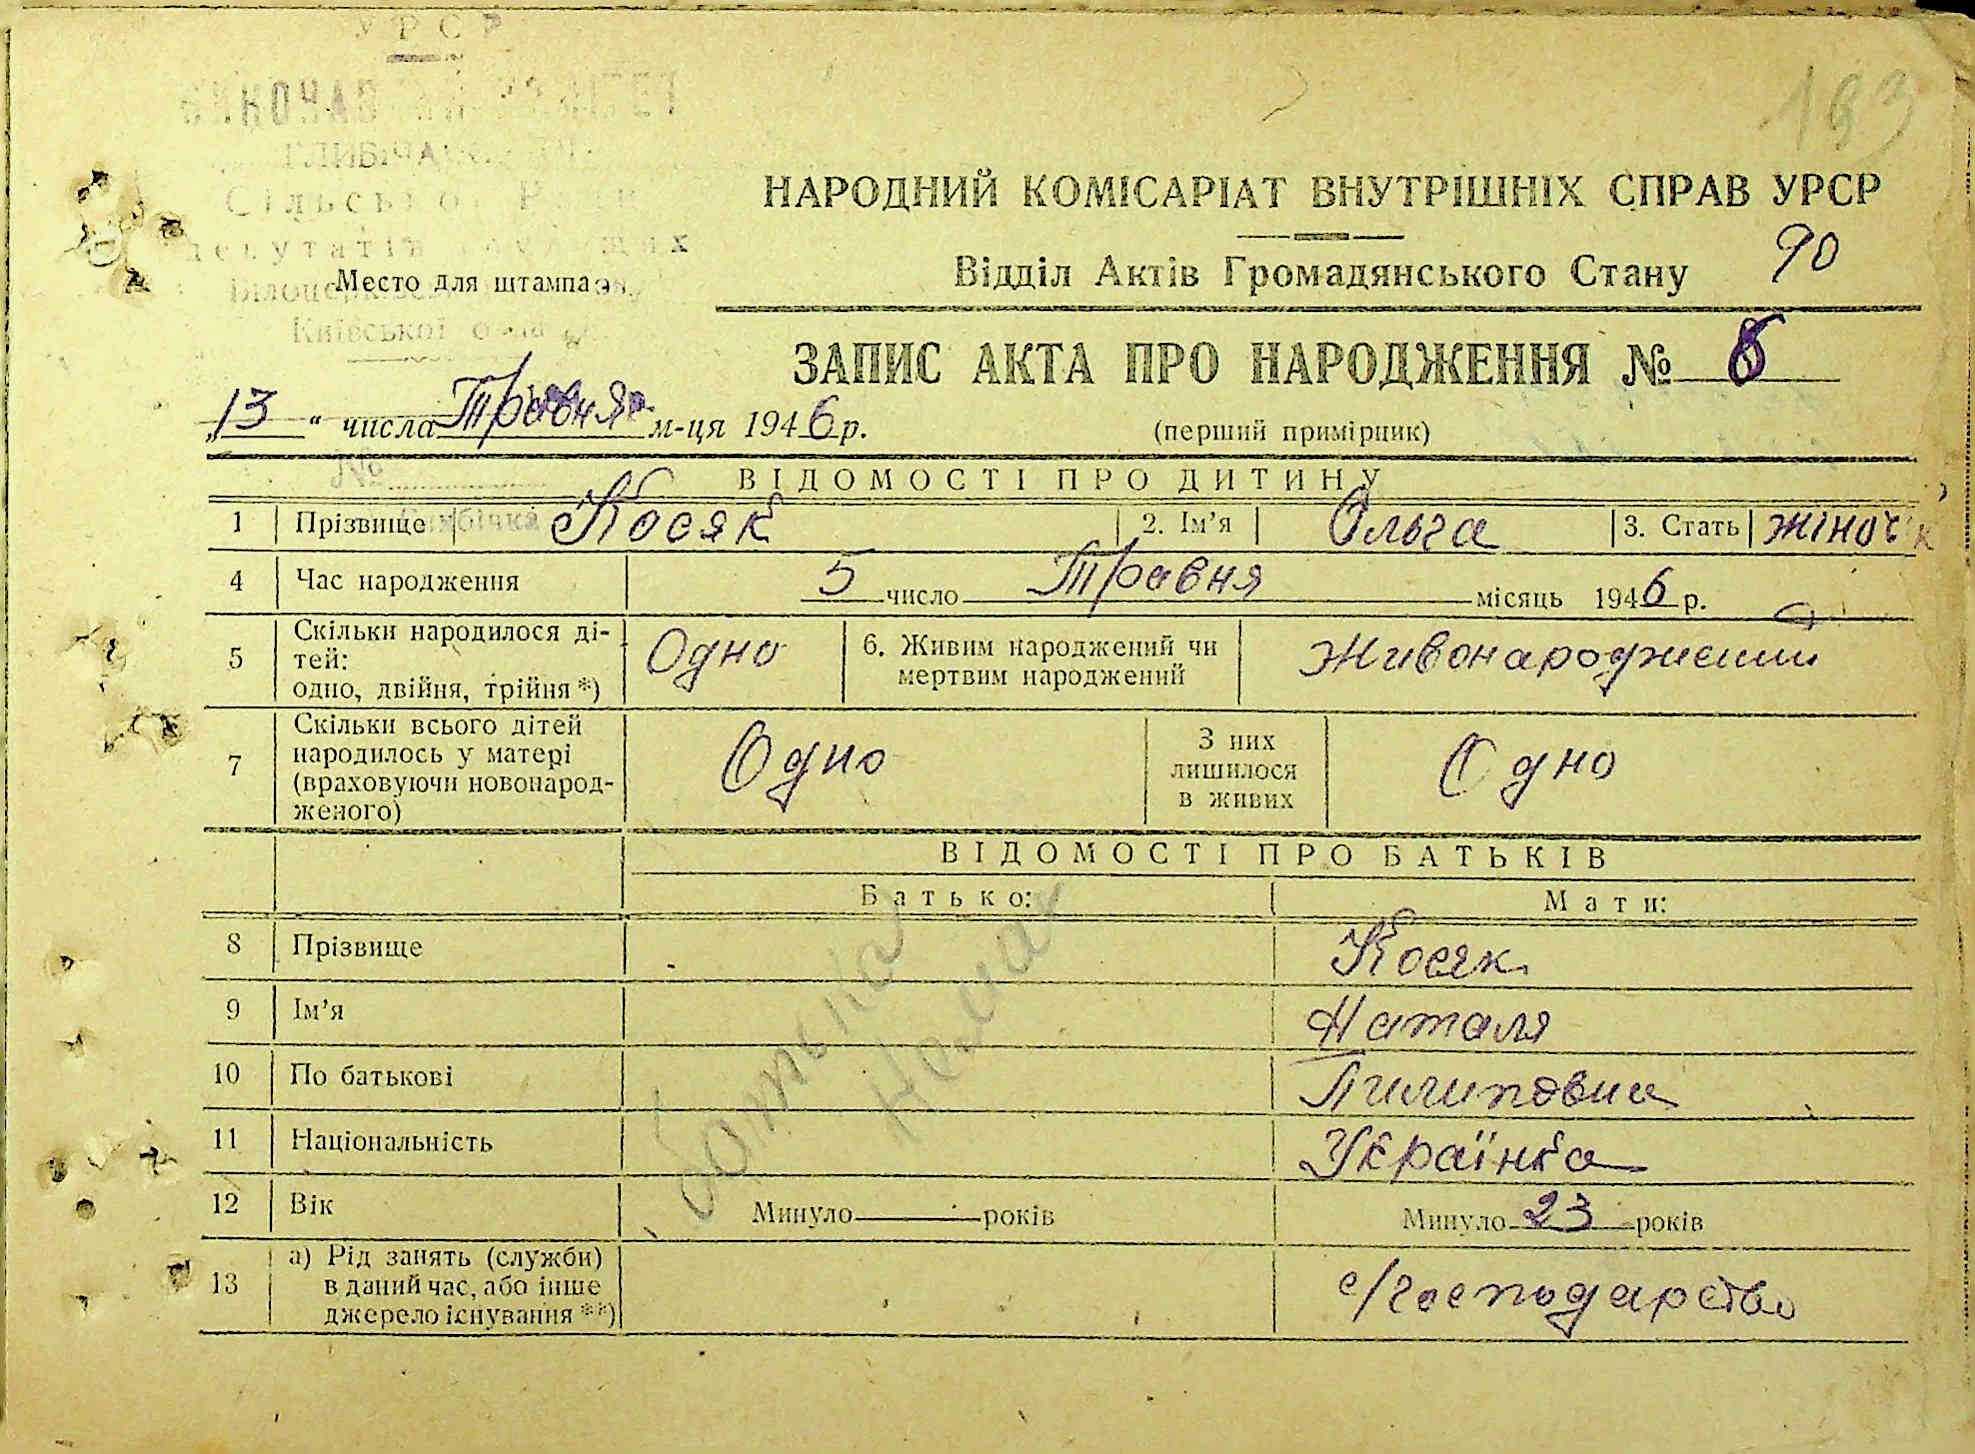 УРСР
ВИКОНАВЧИЙ КОМІТЕТ
ГЛИБІЧАНСЬКОЇ
Сільської Ради
депутатів трудящих
Київської області
Место для штампа
№
163
НАРОДНИЙ КОМІСАРІАТ ВНУТРІШНІХ СПРАВ УРСР
Відділ Актів Громадянського Стану 90
ЗАПИС АКТА ПРО НАРОДЖЕННЯ №
„13“ числа Травня м-ця 1946 р. (перший примірник)
ВІДОМОСТІ ПРО ДИТИНУ
1 Прізвище Косяк 2. Ім’я Ольга 3. Стать жіноч
4 Час народження 5 число Травня місяць 1946 р.
5 Скільки народилося ді-
тей:
одно, двійня, трійня *) Одно 6. Живим народжений чи
мертвим народжений Живонароджений
7 Скільки всього дітей
народилось у матері
(враховуючи новонарод-
женого) Одно З них
лишилося
в живих Одно
ВІДОМОСТІ ПРО БАТЬКІВ
Батько: Мати:
8 Прізвище Косяк
9 Ім’я Наталя
10 По батькові Пилиповна
11 Національність Українка
12 Вік Минуло років Минуло 23 років
13 а) Рід занять (служби)
в даний час, або інше
джерело існування **) с/господарство
батька
немає